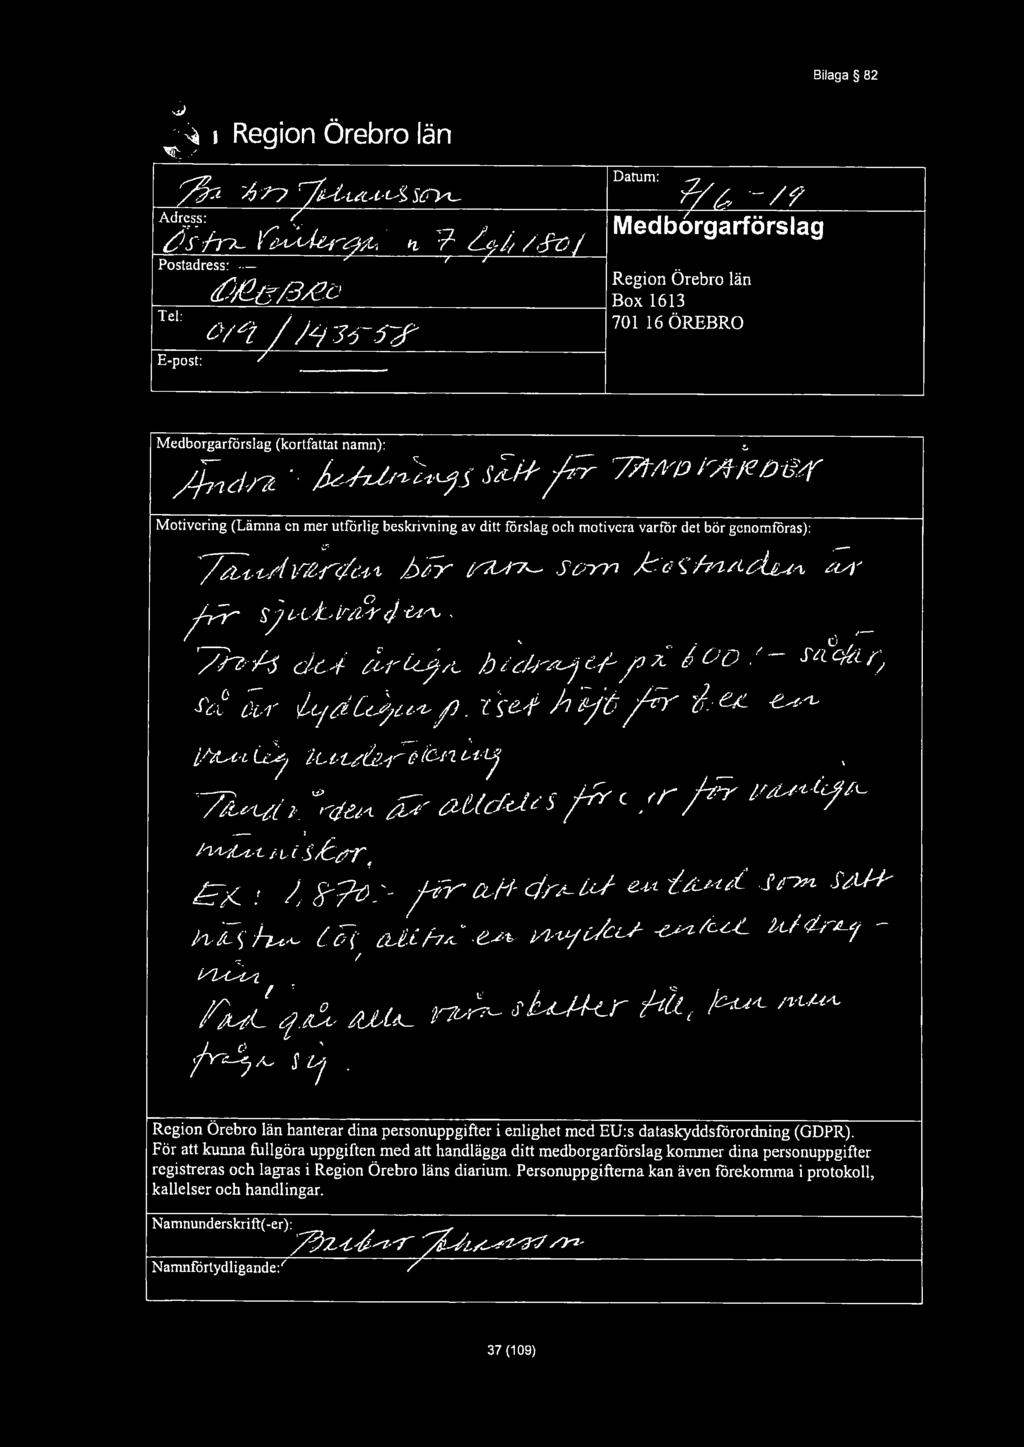 Bilaga § 82
Region Örebro län
Johansson
Datum: 7/6 - 19
Adress:
Östra n 7 Lgh 1801
Medborgarförslag
Postadress:
ÖREBRO
Region Örebro län
Box 1613
701 16 ÖREBRO
Tel: 019 / 143558
E-post:
Medborgarförslag (kortfattat namn):
Ändra betalningssätt för TANDVÅRDEN
Motivering (Lämna en mer utförlig beskrivning av ditt förslag och motivera varför det bör genomföras):
Tandvården bör vara som kostnaden är
för sjukvården.
Trots det årliga bidraget på 600:- sådär,
så är tydligen p iset höjt för t.ex en
vanlig undersökning
Tandv rden är alldeles för för vanliga
människor.
Ex: 1,870:- för att dra ut en tand som satt
nästan lös, alltså en mycket enkel utdrag-
nin
Vad går alla våra skatter till, kan man
fråga sig.
Region Örebro län hanterar dina personuppgifter i enlighet med EU:s dataskyddsförordning (GDPR).
För att kunna fullgöra uppgiften med att handlägga ditt medborgarförslag kommer dina personuppgifter
registreras och lagras i Region Örebro läns diarium. Personuppgifterna kan även förekomma i protokoll,
kallelser och handlingar.
Namnunderskrift(-er): Johansson
Namnförtydligande:
37 (109)